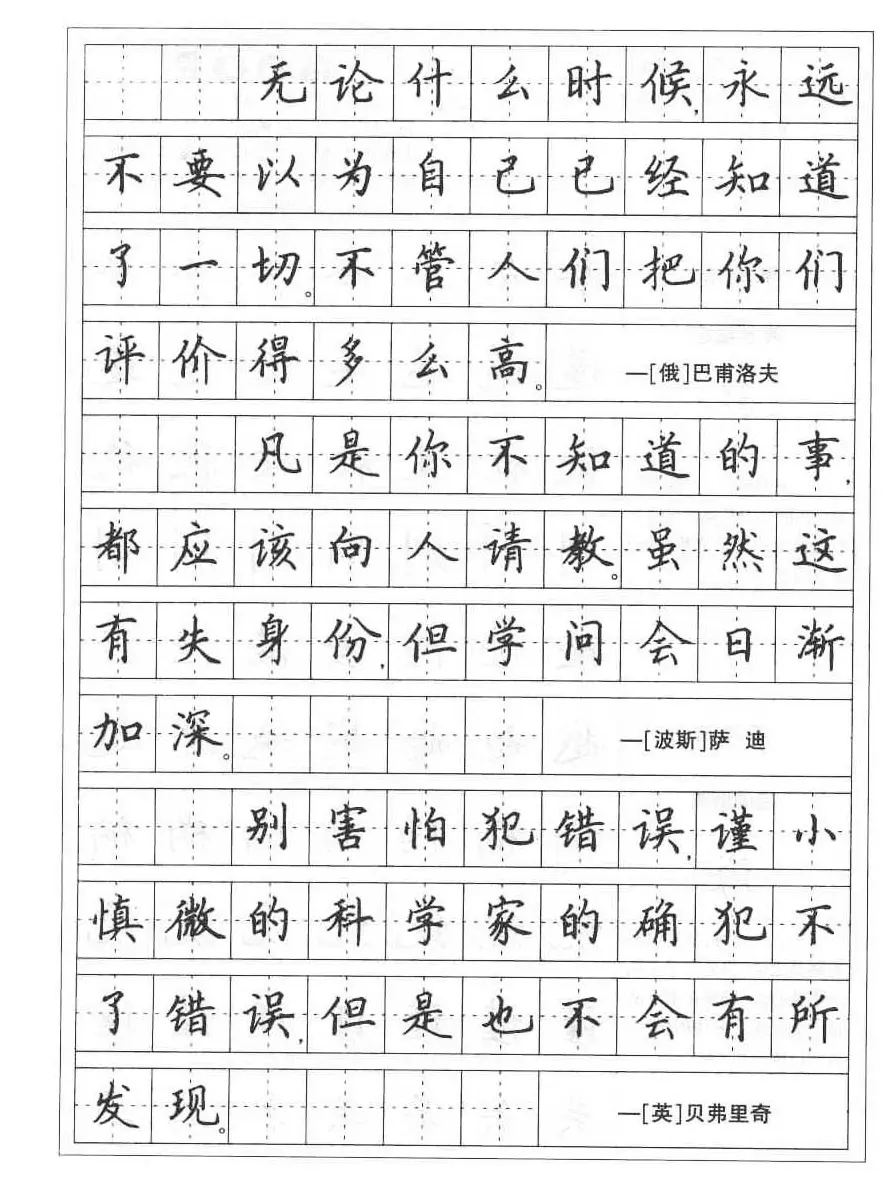 无论什么时候,永远
不要以为自己已经知道
了一切。不管人们把你们
评价得多么高。 —[俄]巴甫洛夫
凡是你不知道的事,
都应该向人请教。虽然这
有失身份,但学问会日渐
加深。 —[波斯]萨 迪
别害怕犯错误,谨小
慎微的科学家的确犯不
了错误,但是也不会有所
发现。 —[英]贝弗里奇